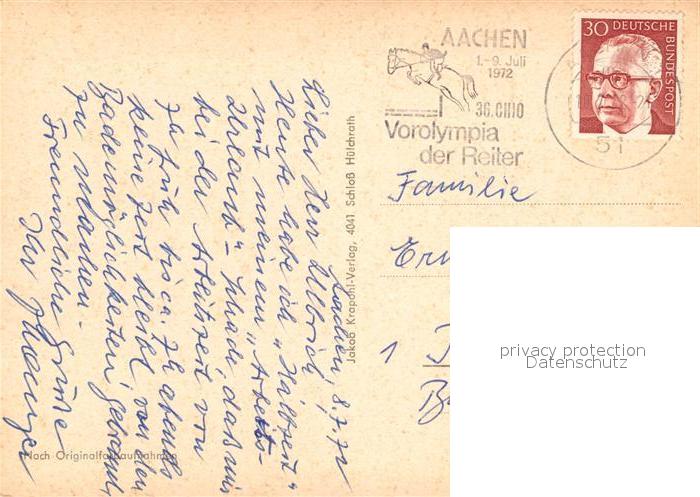 AACHEN
1.-9. Juli
1972
36. CHIO
Vorolympia
der Reiter
30 DEUTSCHE
BUNDESPOST
51
Familie
1
privacy protection
Datenschutz
Jakob Krapohl-Verlag, 4041 Schloß Hülchrath
Aachen, 8.7.72
Lieber Herr Ullrich,
Heute habe ich „Halbzeit"
mit meinem „Arbeits-
Urlaub" - schade daß mir
bei der Arbeitszeit von
7h früh bis ca. 7h abends
keine Zeit bleibt von den
Bademöglichkeiten Gebrauch
zu machen -
Freundliche Grüße
Ihr
Nach Originalfarbaufnahmen